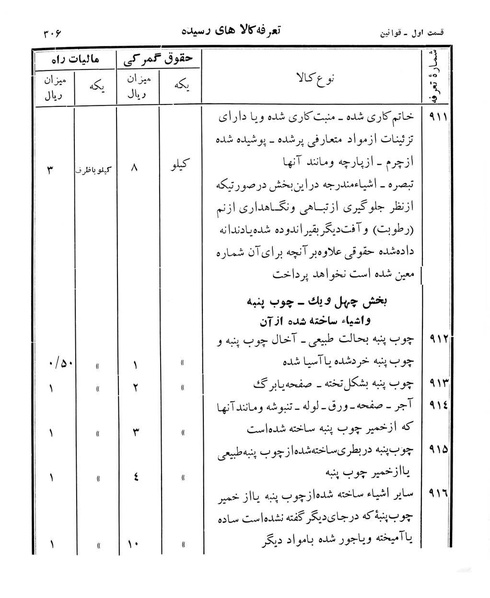 قسمت اول ـ قوانین
تعرفه کالا های رسیده
۳۰۶
شمارهٔ تعرفه
نوع کالا
حقوق گمرکی
مالیات راه
یکه
میزان ریال
یکه
میزان ریال
۹۱۱
خاتم‌کاری شده ـ منبت‌کاری شده ویا دارای
تزئینات ازمواد متعارفی پرشده ـ پوشیده شده
ازچرم ـ ازپارچه ومانند آنها
کیلو
۸
کیلو باظرف
۳
تبصره ـ اشیاء مندرجه دراین بخش درصورتیکه
ازنظر جلوگیری ازتباهی ونگاهداری ازنم
(رطوبت) و آفت دیگر بقیر اندوده شده یادندانه
داده‌شده حقوقی علاوه بر آنچه برای آن شماره
معین شده است نخواهد پرداخت
بخش چهل ویك ـ چوب پنبه
واشیاء ساخته شده ازآن
۹۱۲
چوب پنبه بحالت طبیعی ـ آخال چوب پنبه و
چوب پنبه خرد شده یا آسیا شده
»
۱
»
۰/۵۰
۹۱۳
چوب پنبه بشکل تخته ـ صفحه یا برگ
»
۲
»
۱
۹۱۴
آجر ـ صفحه ـ ورق ـ لوله ـ تنبوشه ومانند آنها
که ازخمیر چوب پنبه ساخته شده‌است
»
۳
»
۱
۹۱۵
چوب پنبه دربطری ساخته‌شده ازچوب پنبه‌طبیعی
یا ازخمیر چوب پنبه
»
۴
»
۱
۹۱۶
سایر اشیاء ساخته شده ازچوب پنبه یا از خمیر
چوب‌پنبهٔ که درجای دیگر گفته نشده‌است ساده
یا آمیخته ویاجور شده بامواد دیگر
»
۱۰
»
۱